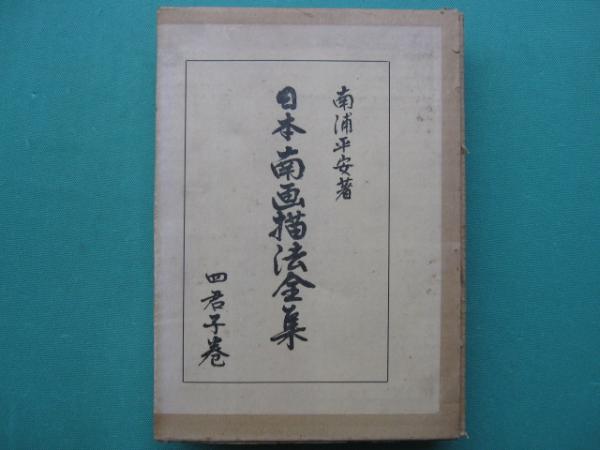 南浦平安著
日本南画描法全集
四君子巻